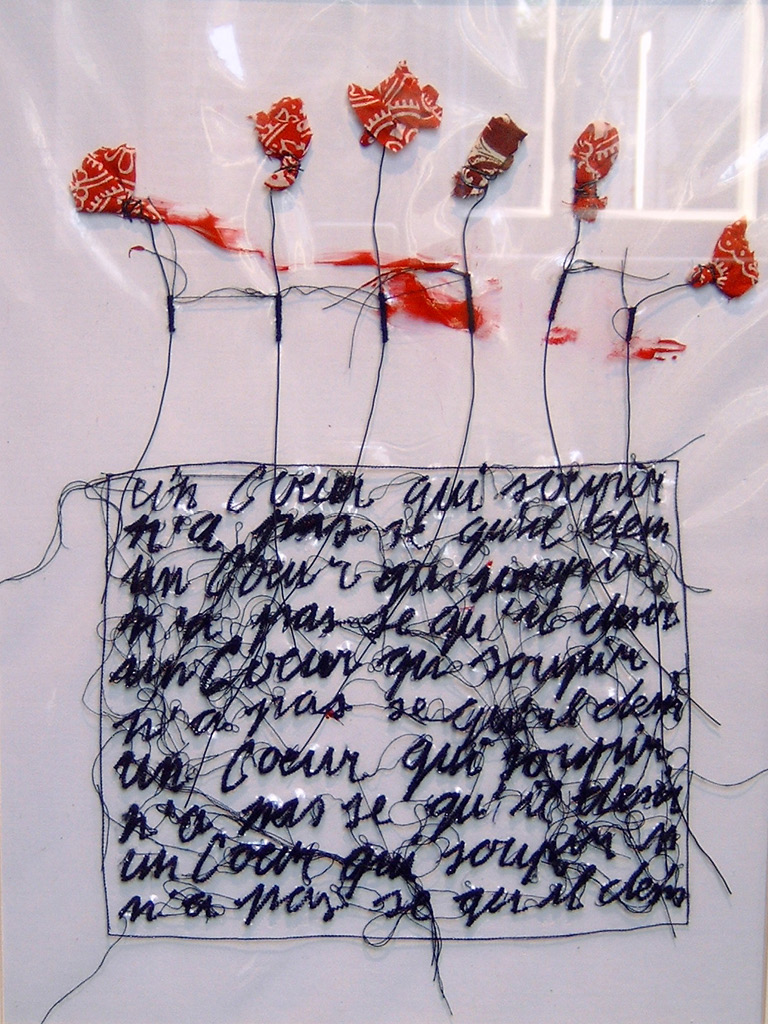 un Coeur qui soupir
n'a pas se qu'il dem
un Coeur qui soupire
n'a pas se qu'il desir
un Coeur qui soupir
n'a pas se qu'il desir
un Coeur qui soupir
n'a pas se qu'il desir
un Coeur qui soupir n
n'a pas se qu'il desir